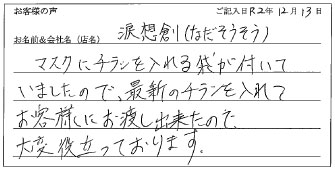 お客様の声 ご記入日R2年12月13日
お名前&会社名(店名) 涙想創(なだそうそう)
マスクにチラシを入れる袋が付いて
いましたので、最新のチラシを入れて
お客様にお渡し出来たので、
大変役立っております。